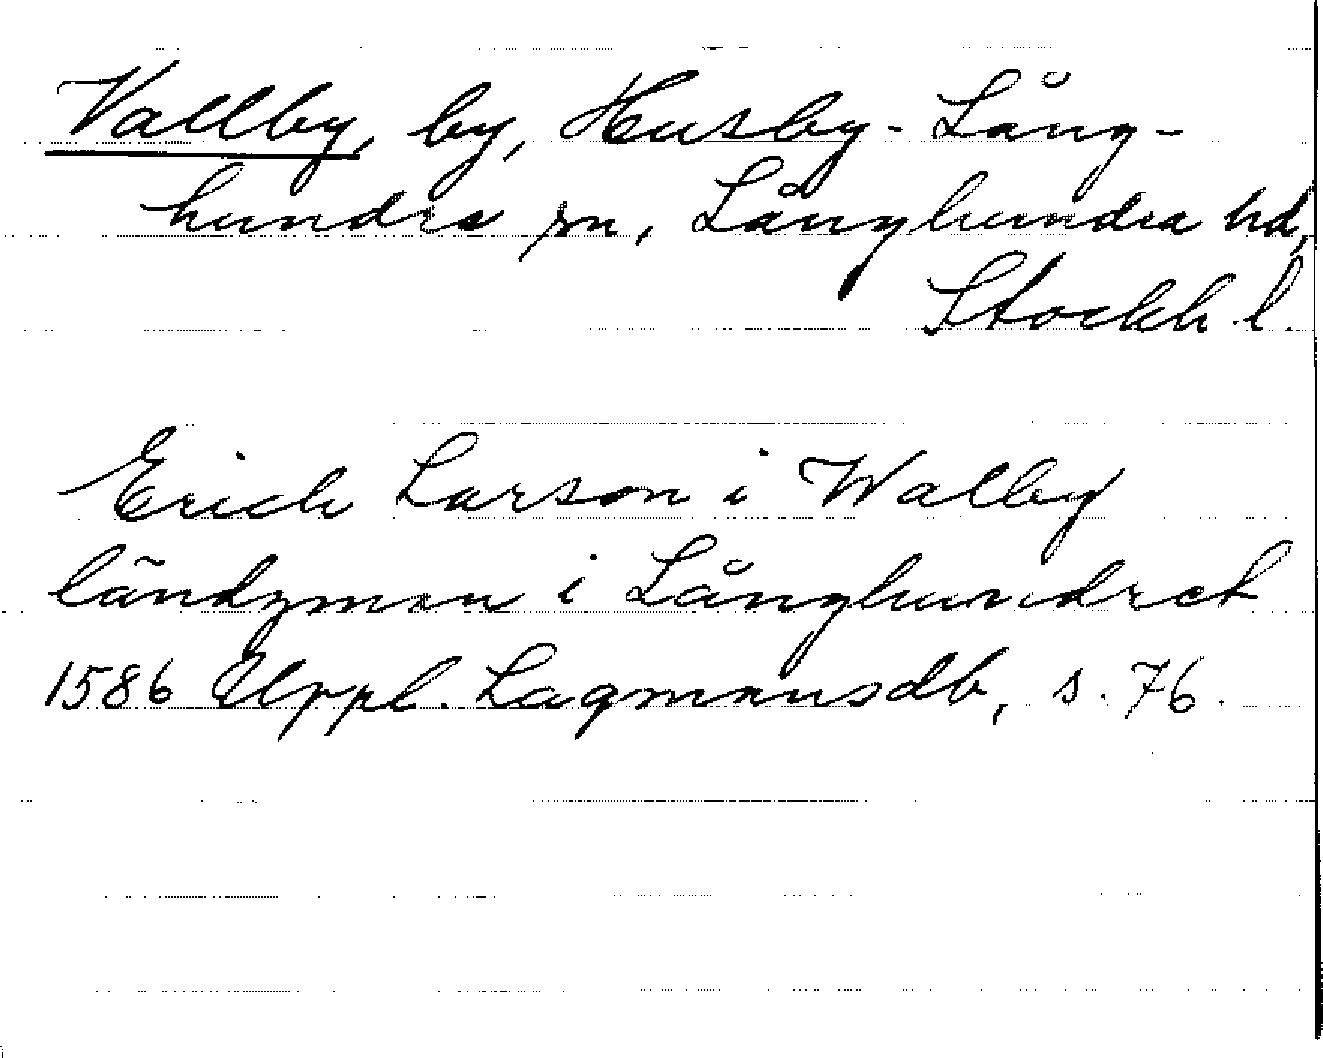 Vallby, by, Husby-Lång-
hundra sn, Långhundra hd,
Stockh. l.
Erich Larson i Walby
ländzman i Långhundret
1586 Uppl. Lagmansdb, s. 76.